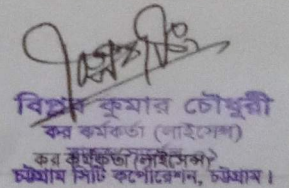 বিপ্লব কুমার চৌধুরী
কর কর্মকর্তা (লাইসেন্স)
কর কর্মকর্তা (লাইসেন্স)
চট্টগ্রাম সিটি কর্পোরেশন, চট্টগ্রাম।